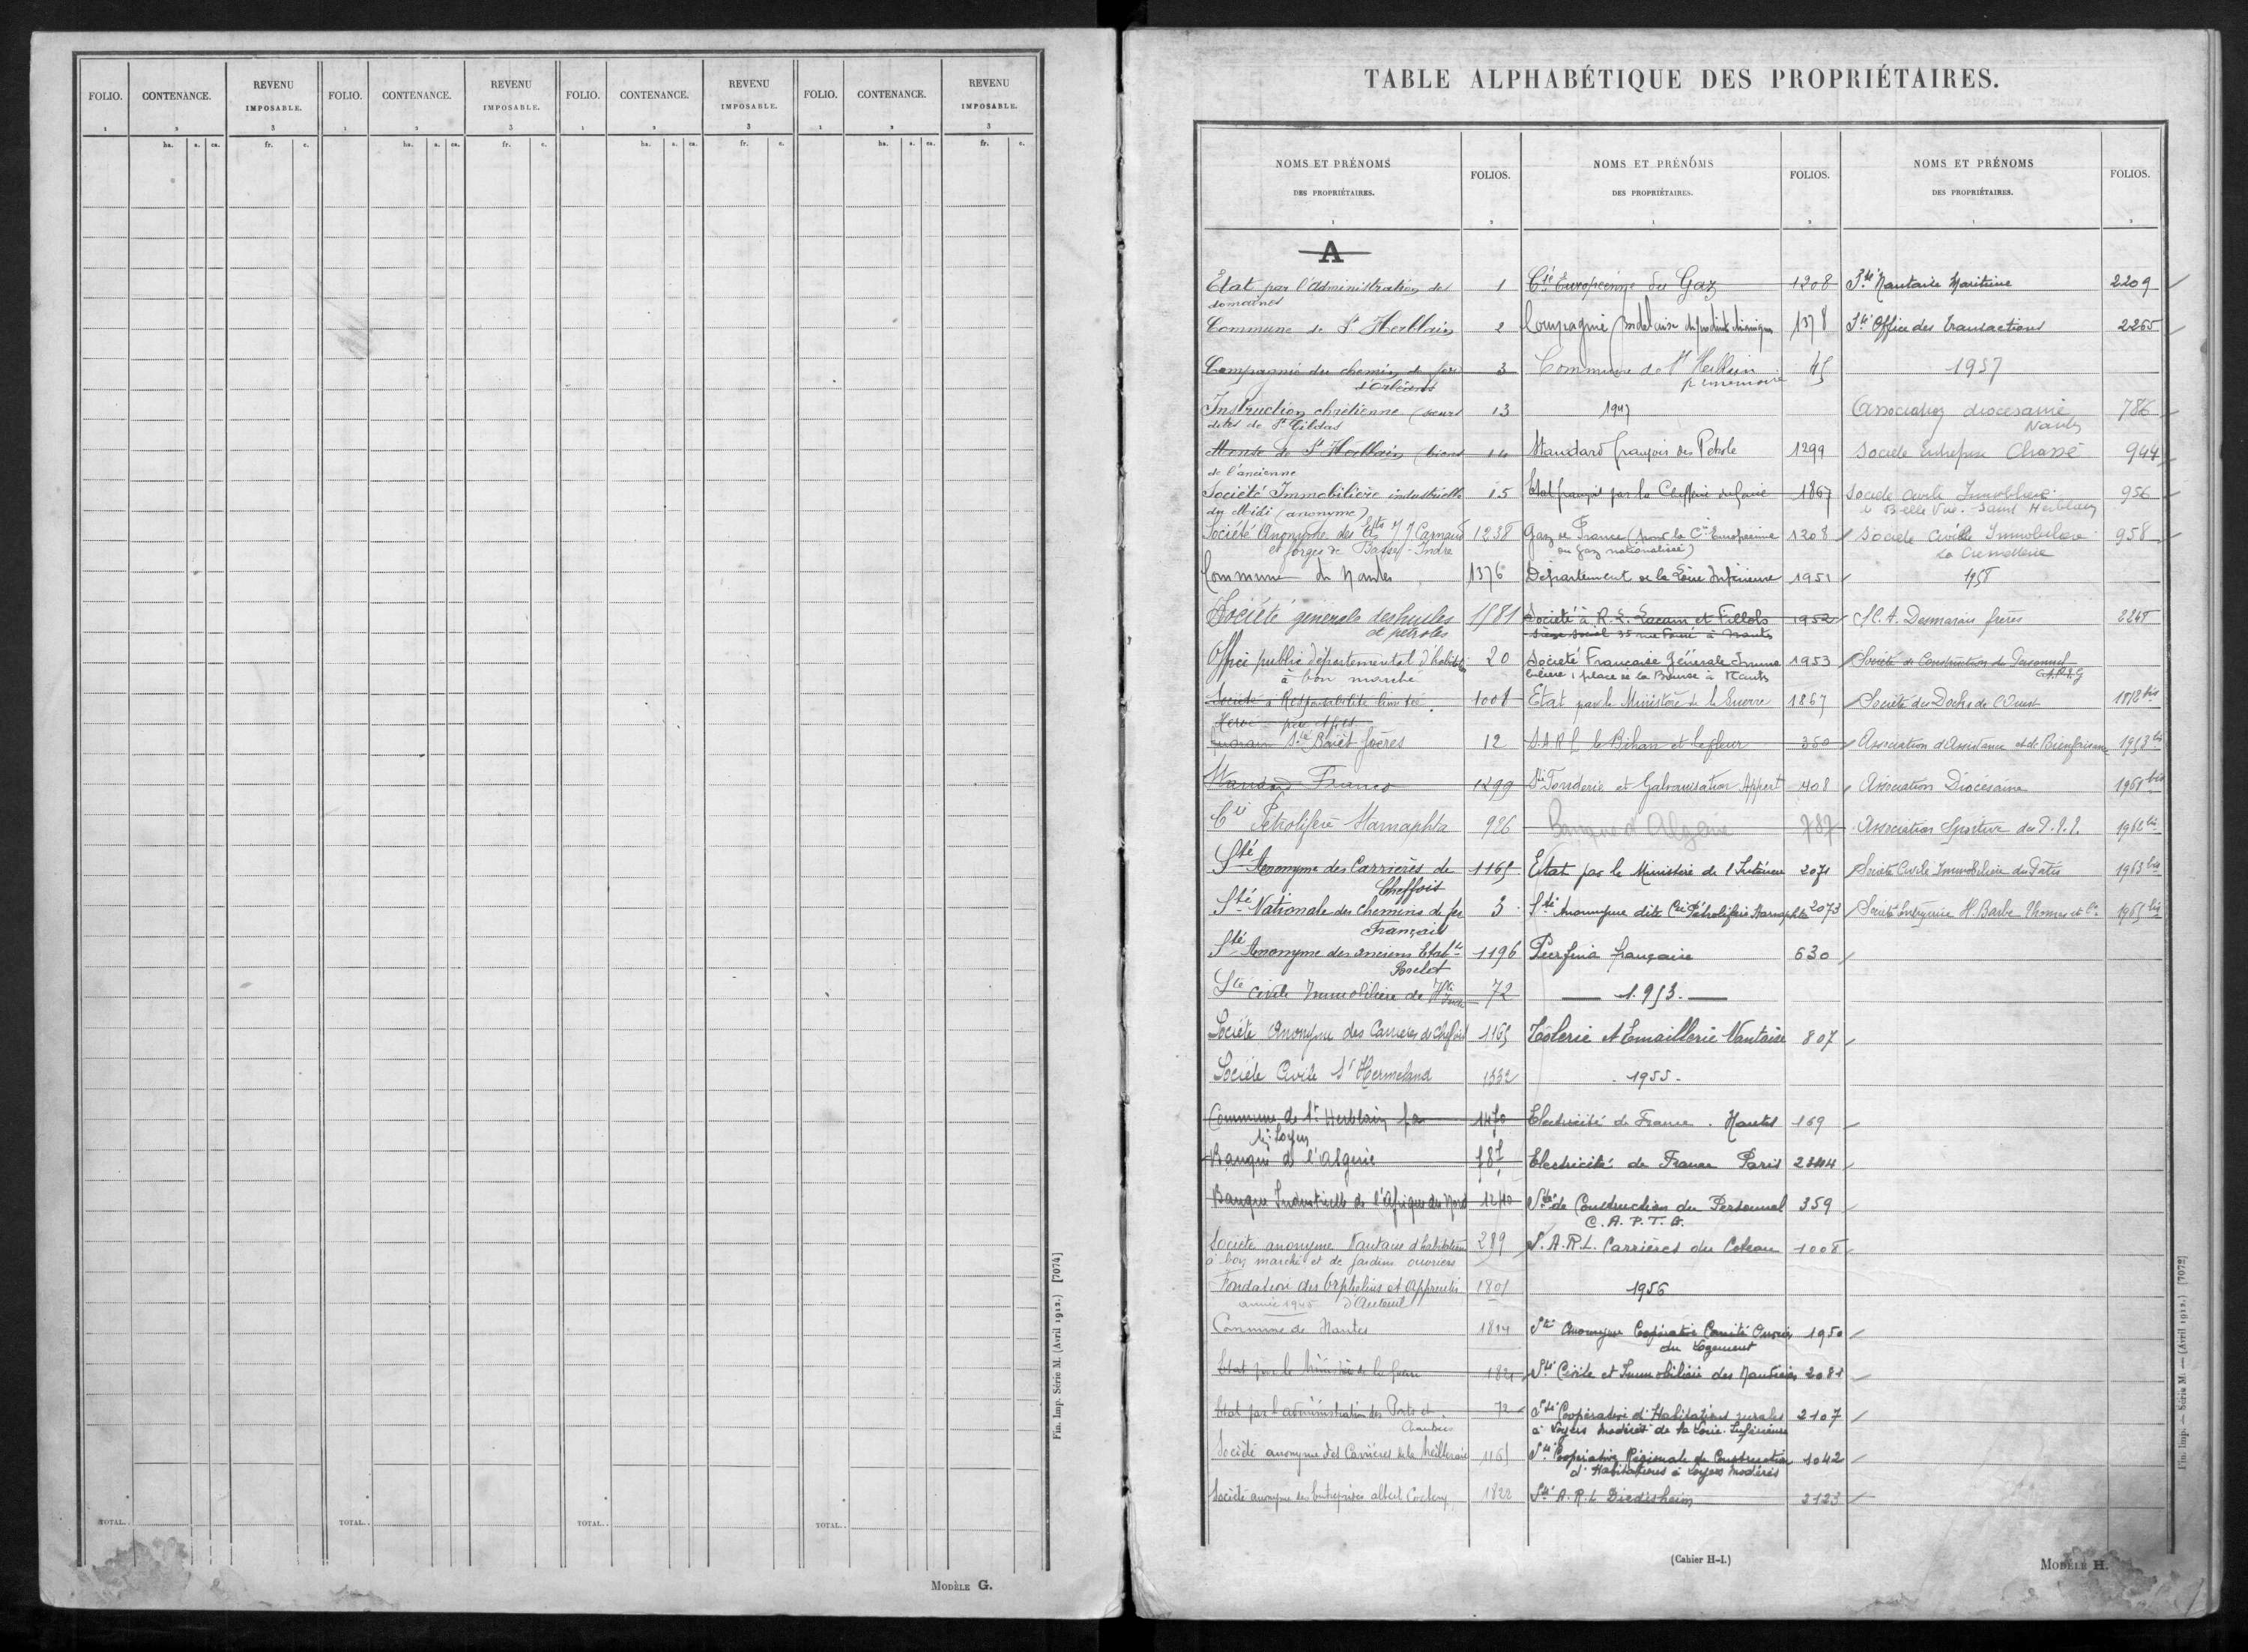 FOLIO. CONTENANCE. REVENU IMPOSABLE. FOLIO. CONTENANCE. REVENU IMPOSABLE. FOLIO. CONTENANCE. REVENU IMPOSABLE. FOLIO. CONTENANCE. REVENU IMPOSABLE.
1 2 3 1 2 3 1 2 3 1 2 3
ha. a. ca. fr. c. ha. a. ca. fr. c. ha. a. ca. fr. c. ha. a. ca. fr. c.
TOTAL.. TOTAL.. TOTAL.. TOTAL..
Fin. Imp. Série M. (Avril 1912.) [7074]
MODÈLE G.
TABLE ALPHABÉTIQUE DES PROPRIÉTAIRES.
NOMS ET PRÉNOMS DES PROPRIÉTAIRES. FOLIOS. NOMS ET PRÉNOMS DES PROPRIÉTAIRES. FOLIOS. NOMS ET PRÉNOMS DES PROPRIÉTAIRES. FOLIOS.
1 2 1 2 1 2
A
Etat par l'Administration des 1
domaines
Commune de St Herblain 2
Compagnie du chemin de fer 3
d'Orléans
Instruction chrétienne (sœurs 13
dites de St Gildas
Mense de St Herblain (biens 14
de l'ancienne
Société Immobilière industrielle 15
du Midi (anonyme)
Société Anonyme des Ets JJ Carnaud 1238
et forges de Basse-Indre
Commune de Nantes 1376
Société générale des huiles 1581
et pétroles
Office public départemental d'habitation 20
à bon marché
Société à Responsabilité limitée 1008
Hervé père et fils
Sté Boiet frères 12
Standard Franco 1299
Cie Pétrolifère Marnaphta 926
Sté Anonyme des Carrières de 1165
Cheffois
Sté Nationale des chemins de fer 3
Français
Sté Anonyme des anciens Etabts 1196
Sté civile Immobilière de Hte Indre 72
Société Anonyme des Carrières de Cheffois 1165
Société Civile St Hermeland 1332
Commune de St Herblain 1470
Banque de l'Algérie 787
Banque Industrielle de l'Afrique du Nord 1240
Société anonyme Nantaise d'habitations 289
à bon marché et de jardins ouvriers
Fondation des Orphelins et Apprentis 1801
année 1945 d'Auteuil
Commune de Nantes 1814
Etat par le Ministère de la Guerre 1821
Etat par l'administration des Ponts et 72
Chaussées
Société anonyme des Carrières de la Meilleraie 1165
Société anonyme des Entreprises albert Cochery 1822
Cie Européenne du Gaz 1208
Compagnie Bordelaise de produits chimiques 1378
Commune de St Herblain 45
p mémoire
1947
Standard français des Pétrole 1299
Etat français par la Chefferie du Génie 1867
Gaz de France (pour la Cie Européenne 1208
du Gaz nationalisée)
Département de la Loire Inférieure 1951
Société à R. L. Lacam et Fillols 1952
siège social 35 rue Fouré à Nantes
Société Française Générale Immo 1953
bilière 1 place de la Bourse à Nantes
Etat par le Ministère de la Guerre 1867
S.A.R.L. le Bihan et Lefleur 350
Sté Fonderie et Galvanisation Appert 408
Banque d'Algérie 787
Etat par le Ministère de l'Intérieur 2071
Sté Anonyme dite Cie Pétrolifère Marnaphta 2073
Purfina française 630
1.953.
Tôlerie et Emaillerie Nantaise 807
1955
Electricité de France . Nantes 169
Electricité de France Paris 2344
Sté de Construction du Personnel 359
C. A. P. T. G.
S.A.R.L. Carrières du Coteau 1008
1956
Sté Anonyme Coopérative Comité Ouvrier 1950
du Logement
Sté Civile et Immobilière des Nautiers 2081
Sté Coopérative d'Habitations rurales 2107
à Loyers modérés de la Loire-Inférieure
Sté Coopérative Régionale de Construction 1042
d'Habitations à Loyers modérés
Sté A.R.L Diedisheim 2123
Sté Nantaise Maritime 2209
Sté Office des Transactions 2265
1957
Association diocésaine 786
Nantes
Société Entreprise Chassé 944
Société Civile Immobilière 956
de Belle Vue. Saint Herblain
Société Civile Immobilière 958
La Crémetterie
1958
S.C.A. Desmarais frères 2248
Société de Construction du Personnel
C.A.P.T.G
Société des Docks de l'Ouest 1892 bis
Association d'Assistance et de Bienfaisance 1953 bis
Association Diocésaine 1961 bis
Association Sportive des P.T.T. 1962 bis
Société Civile Immobilière du Pâtis 1963 bis
Société Entreprise H. Barbe Thomas et Cie 1965 bis
(Cahier H-I.)
MODÈLE H.
Fin. Imp. — Série M. — (Avril 1912.) [7072]